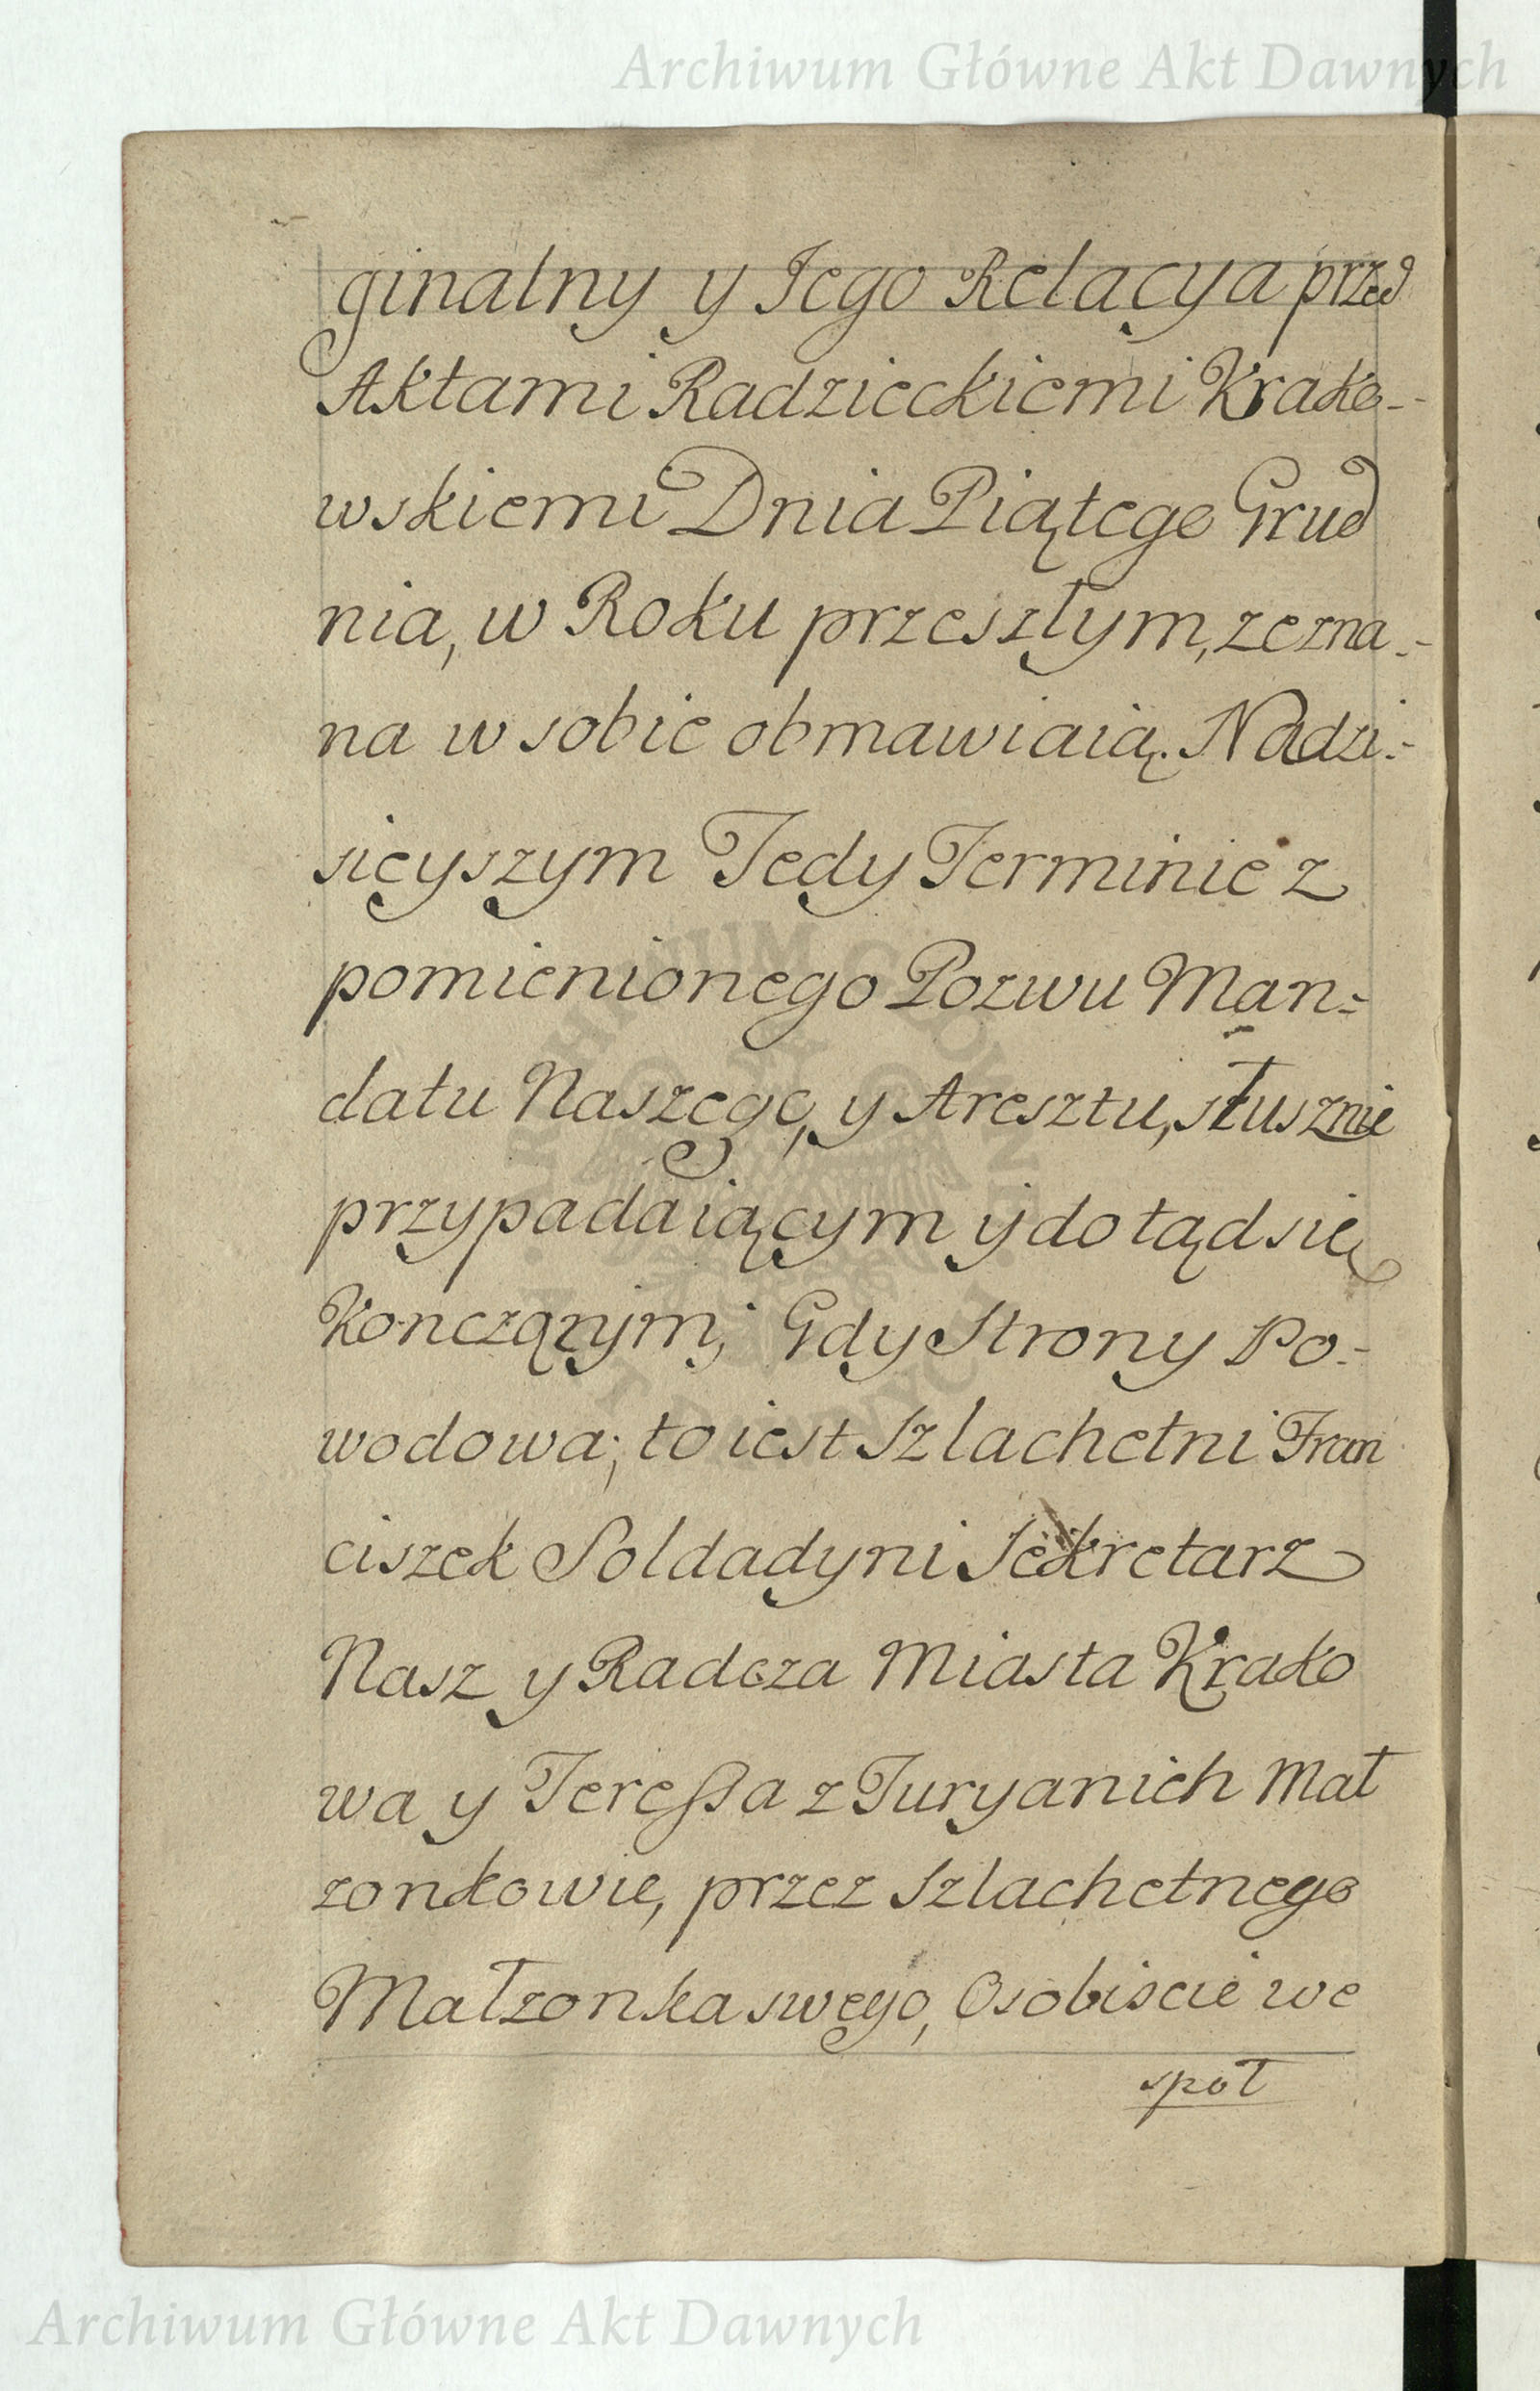 Archiwum Główne Akt Dawnych
ginalny y Jego Relącya przed
Aktami Radzieckiemi Krako-
wskiemi Dnia Piątego Grud
nia, w Roku przeszłym, zezna-
na w sobie obmawiaią. Nadzi-
sieyszym Tedy Terminie z
pomienionego Pozwu Man-
datu Naszego, y Aresztu, słusznie
przypadaiącym y dotąd się
Konczącym; Gdy Strony Po-
wodowa; to iest Szlachetni Fran
ciszek Soldadyni Sekretarz
Nasz y Radcza Miasta Krako
wa y Teressa z Turyanich Mał
zonkowie, przez Szlachetnego
Małzonka swego, Osobiscie we
społ
Archiwum Główne Akt Dawnych